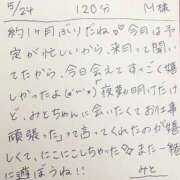 5/24　120分　M様
約1ヶ月ぶりだね♡今日は予
定が忙しいから、来月って聞い
てたから、今日会えてすっごく嬉
しかったよ(°∀°)！「夜勤明けだけ
ど、みとちゃんに会いたくてお仕事
頑張った」って言ってくれたのが嬉
しくて、にこにこしちゃった☆また一緒
に遊ぼうね!!
みと